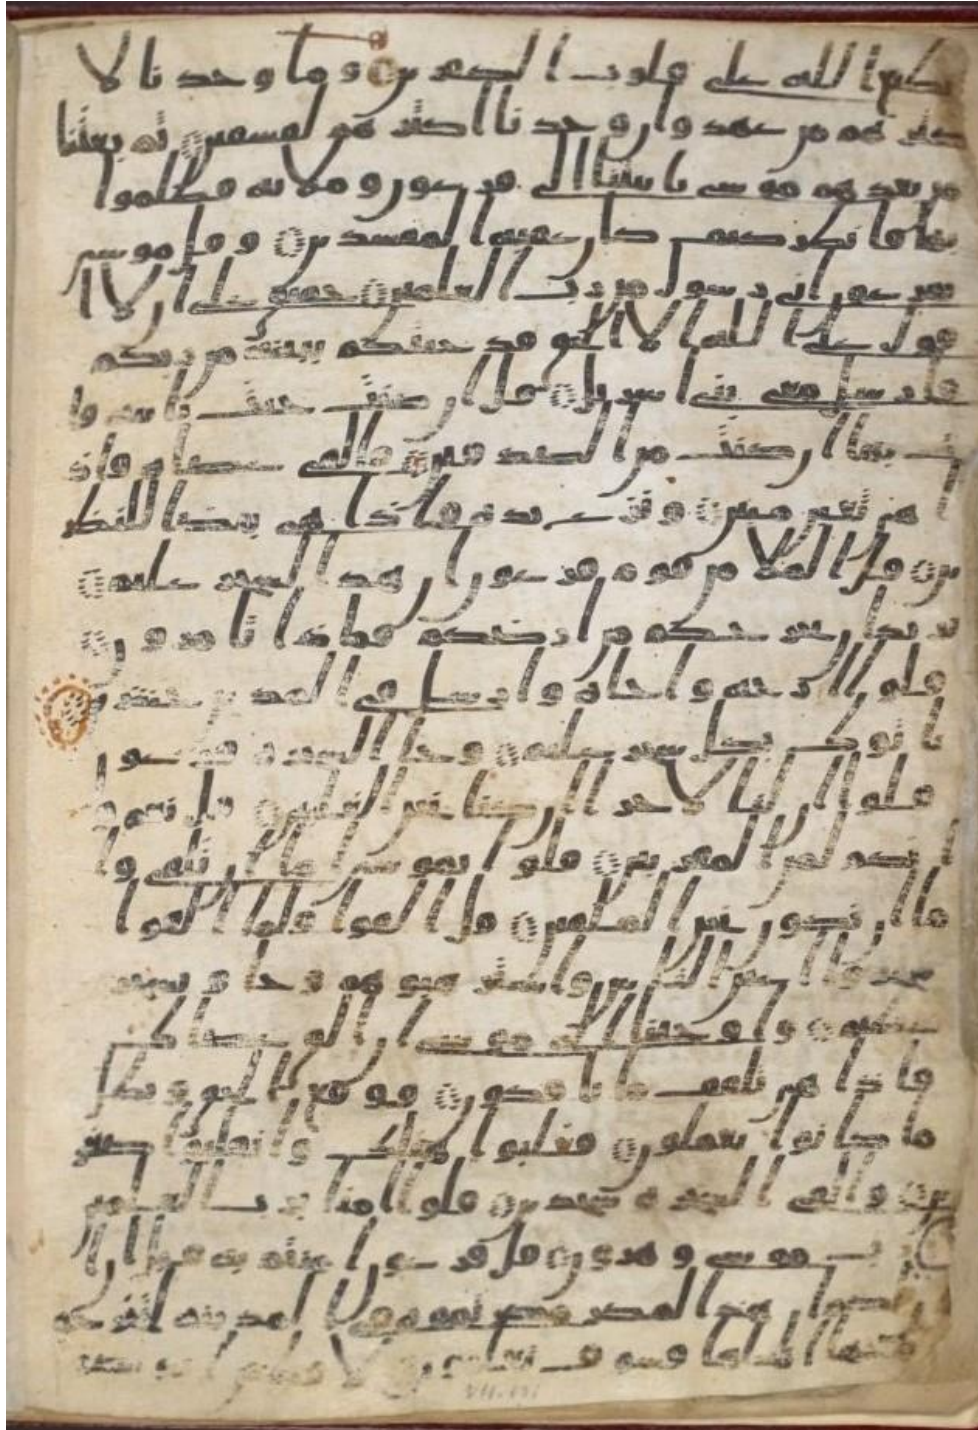 يطبع الله على قلوب الكفرين وما وجدنا لا
كثرهم من عهد وان وجدنا اكثرهم لفسقين ثم بعثنا
من بعدهم موسى بايتنا الى فرعون وملايه فظلموا
بها فانظر كيف كان عقبة المفسدين وقل موسى
يفرعون انى رسول من رب العلمين حقيق على ان لا ا
قول على الله الا الحق قد جيتكم ببينة من ربكم
فارسل معى بنى اسريل قل ان كنت جيت باية فا
ت بها ان كنت من الصدقين فالقى عصاه فاذ
ا هى ثعبن مبين ونزع يده فاذا هى بيضا للنظر
ين قل الملا من قوم فرعون ان هذا لسحر عليم
يريد ان يخرجكم من ارضكم فماذا تامرون
قلوا ارجه واخاه وارسل فى المدين حشرين
ياتوك بكل سحر عليم وجا السحرة فرعون
قلوا ان لنا لاجرا ان كنا نحن الغلبين قل نعم و
انكم لمن المقربين قلوا يموسى اما ان تلقى وا
ما ان نكون نحن الملقين قل القوا فلما القوا
سحروا اعين الناس واسترهبوهم وجاو بسحر
عظيم واوحينا الى موسى ان الق عصاك
فاذا هى تلقف ما يافكون فوقع الحق وبطل
ما كانوا يعملون فغلبوا هنلك وانقلبوا صغر
ين والقى السحرة سجدين قلوا امنا برب العلمين
رب موسى وهرون قل فرعون امنتم به قبل ان ا
لكم ان هذا لمكر مكرتموه فى المدينة لتخرجو
منها اهلها فسوف تعلمون لاقطعن